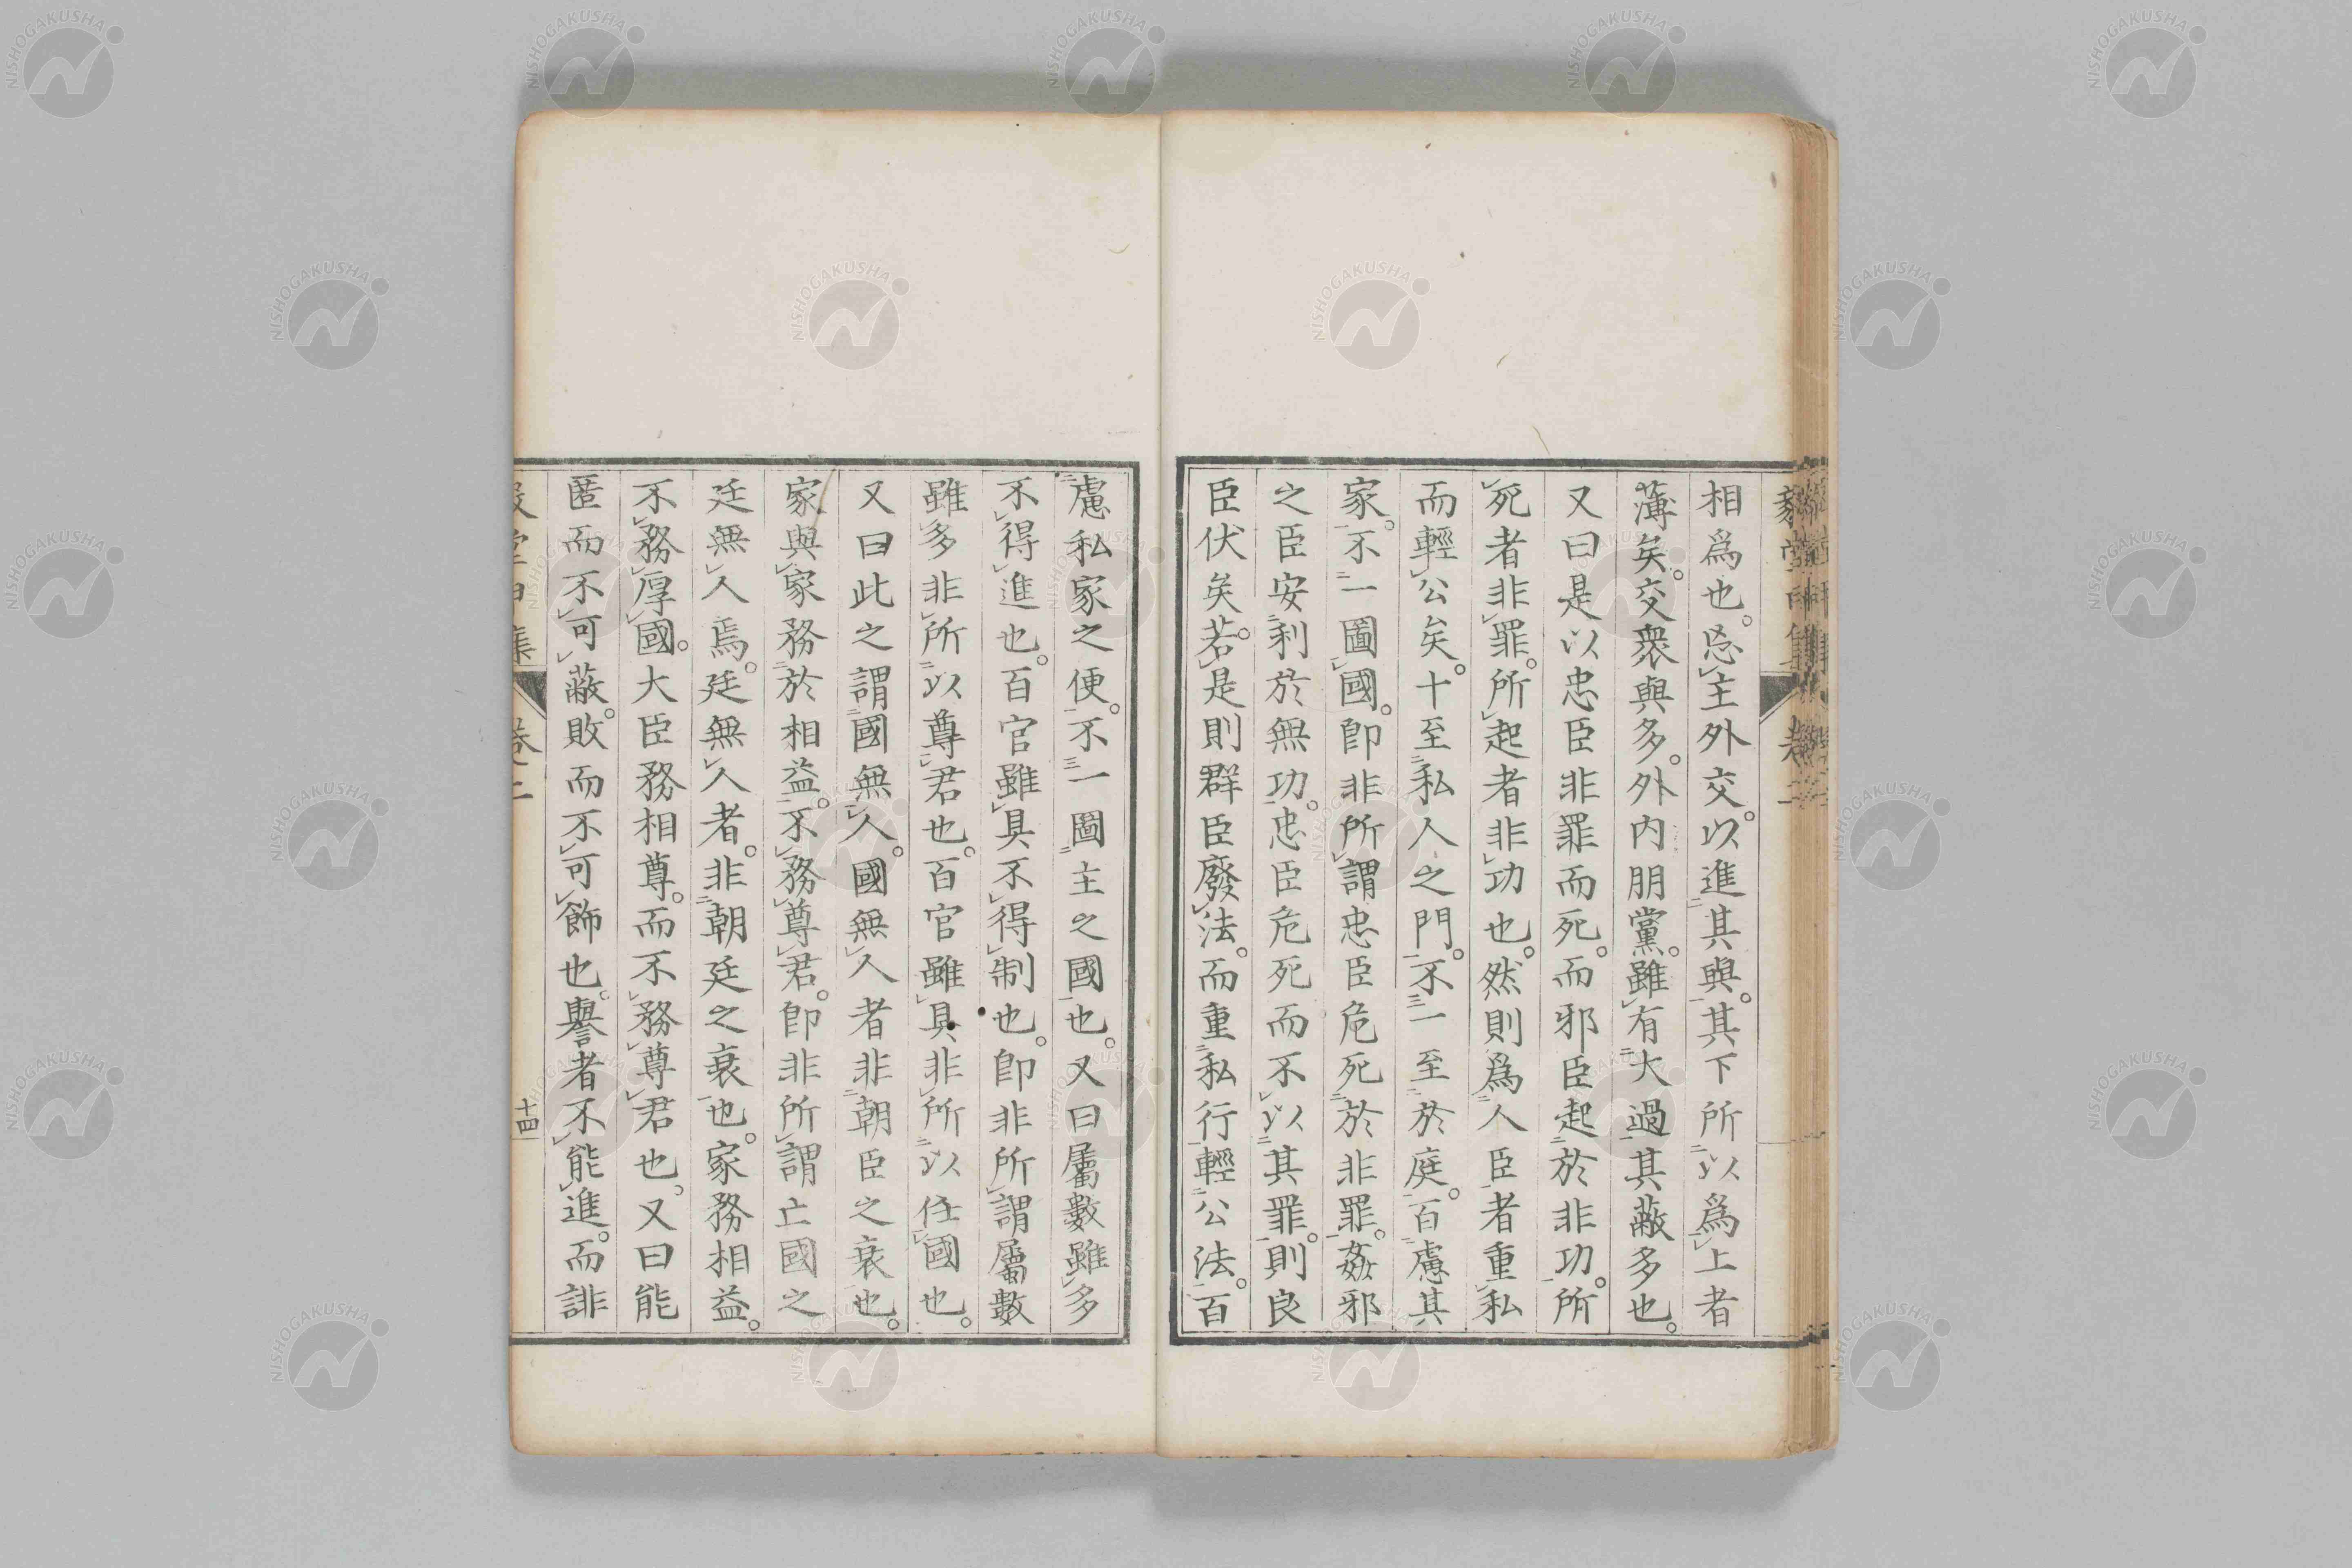 相爲也。忘主外交。以進其與。其下所以爲上者
薄矣。交衆與多。外内朋黨。雖有大過其蔽多也。
又曰是以忠臣非罪而死。而邪臣起於非功。所
死者非罪。所起者非功也。然則爲人臣者重私
而輕公矣。十至私人之門。不一至於庭。百慮其
家。不一圖國。卽非所謂忠臣危死於非罪。姦邪
之臣安利於無功。忠臣危死而不以其罪。則良
臣伏矣。若是則群臣廢法。而重私行輕公法。百
慮私家之便。不一圖主之國也。又曰屬數雖多
不得進也。百官雖具不得制也。卽非所謂屬數
雖多非所以尊君也。百官雖具非所以任國也。
又曰此之謂國無人。國無人者非朝臣之衰也。
家與家務於相益。不務尊君。卽非所謂亡國之
廷無人焉。廷無人者。非朝廷之衰也。家務相益。
不務厚國。大臣務相尊。而不務尊君也。又曰能
匿而不可蔽。敗而不可飾也。譽者不能進。而誹
卷二
十四
NISHOGAKUSHA